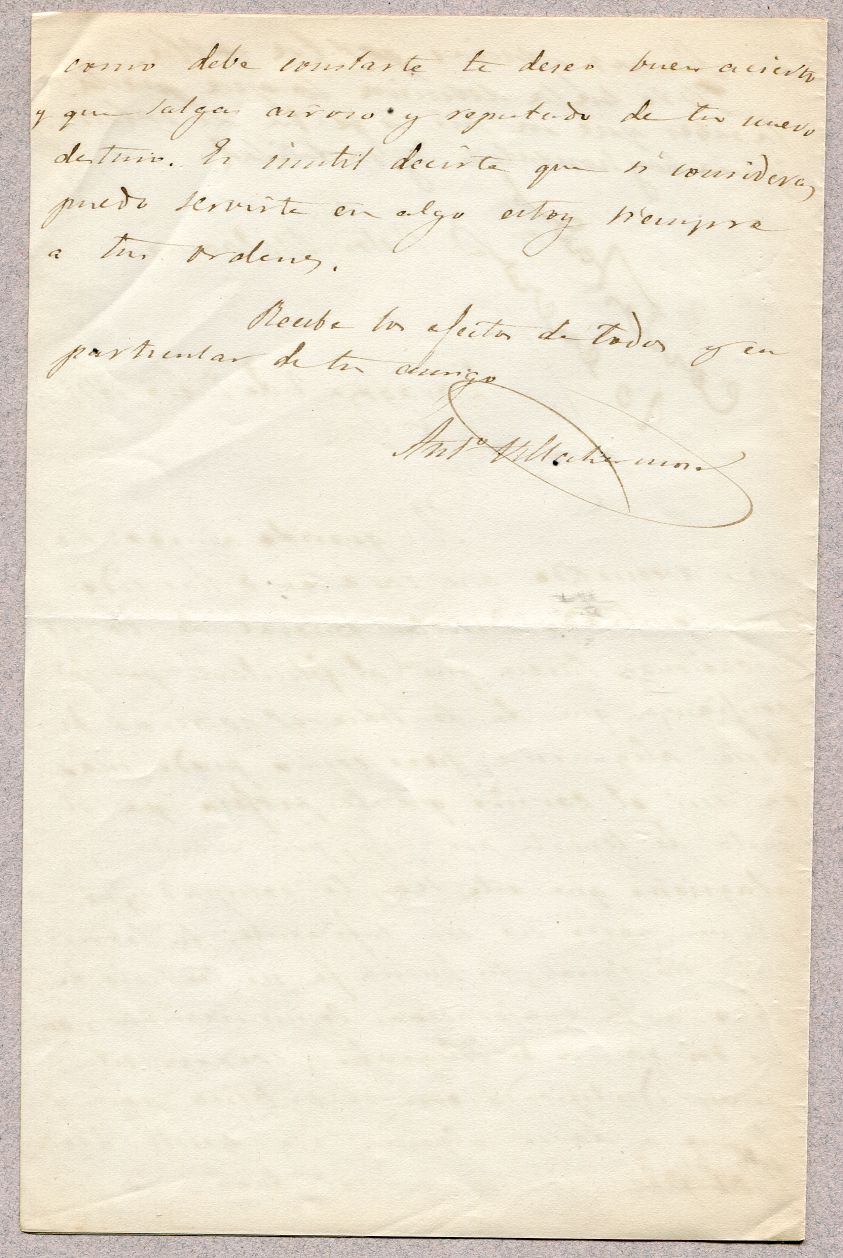 como debe constarte te deseo buen acierto
y que salgas airoso y reputado de tu nuevo
destino. Es inutil decirte que si consideras
puedo servirte en algo estoy siempre
a tus ordenes.
Recibe los afectos de todos y en
particular de tu amigo
Antº